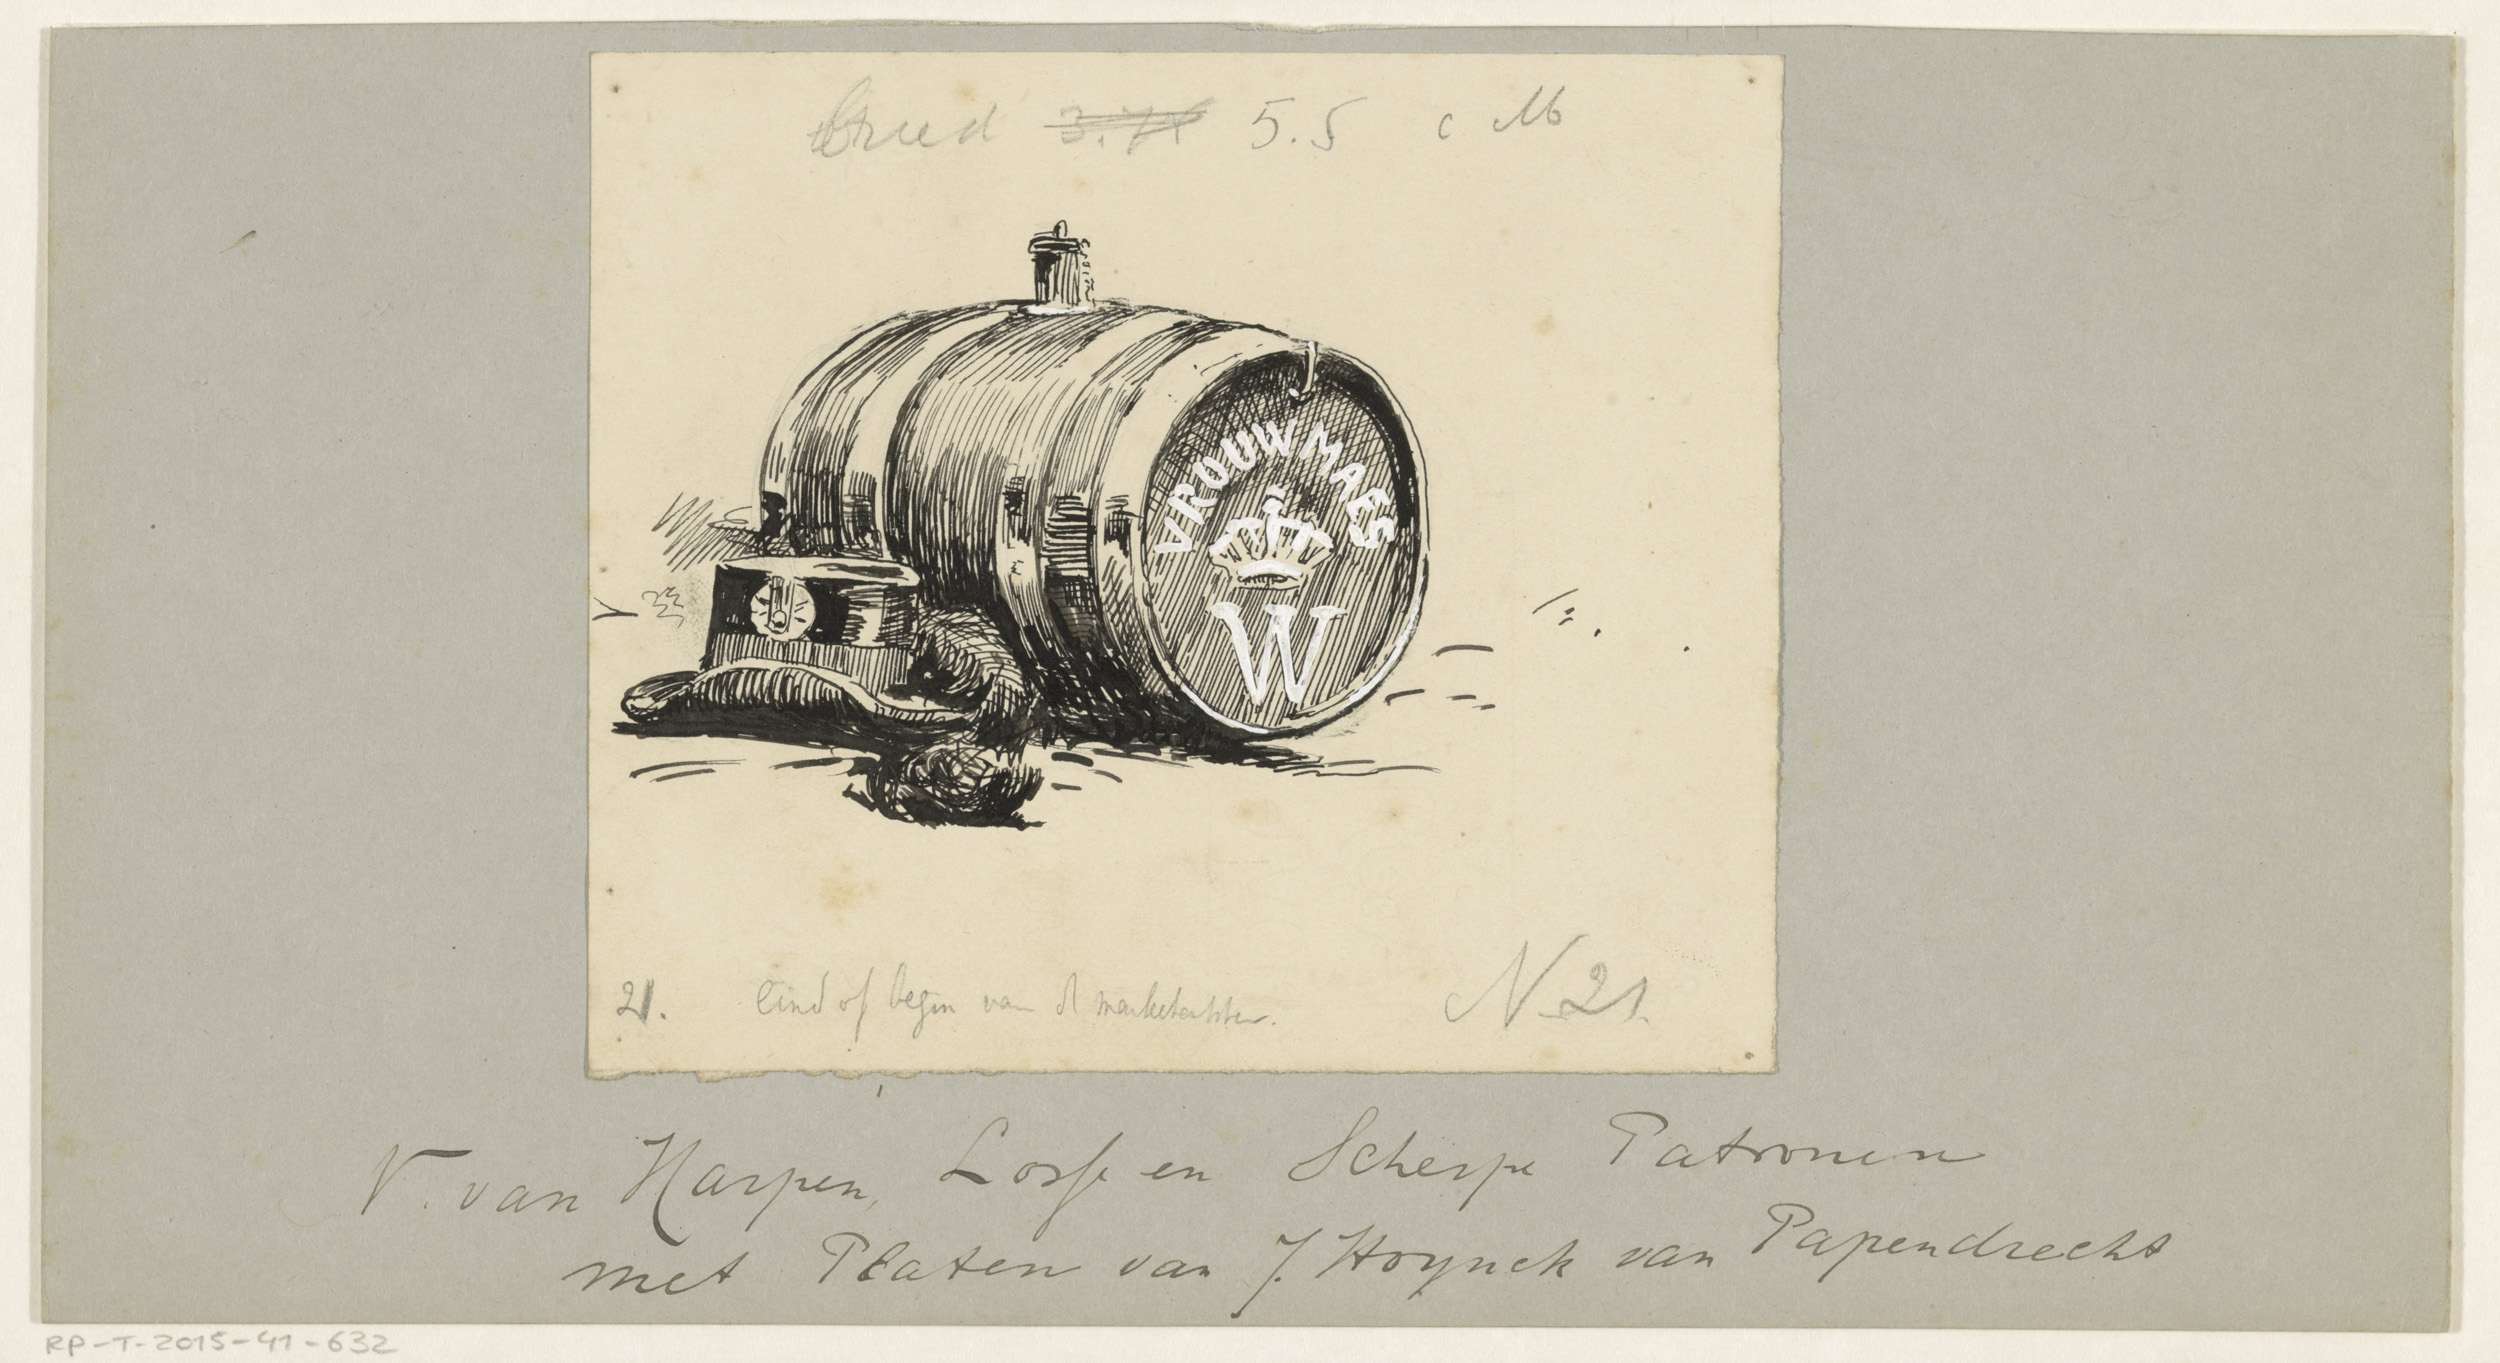 breed 3.75 5.5 c M
VROUW MAES
W
21. eind of begin van d marketentster.
N 21.
V. van Harpen, Losse en Scherpe Patronen
met Platen van J. Hoynck van Papendrecht
RP-T-2015-41-632